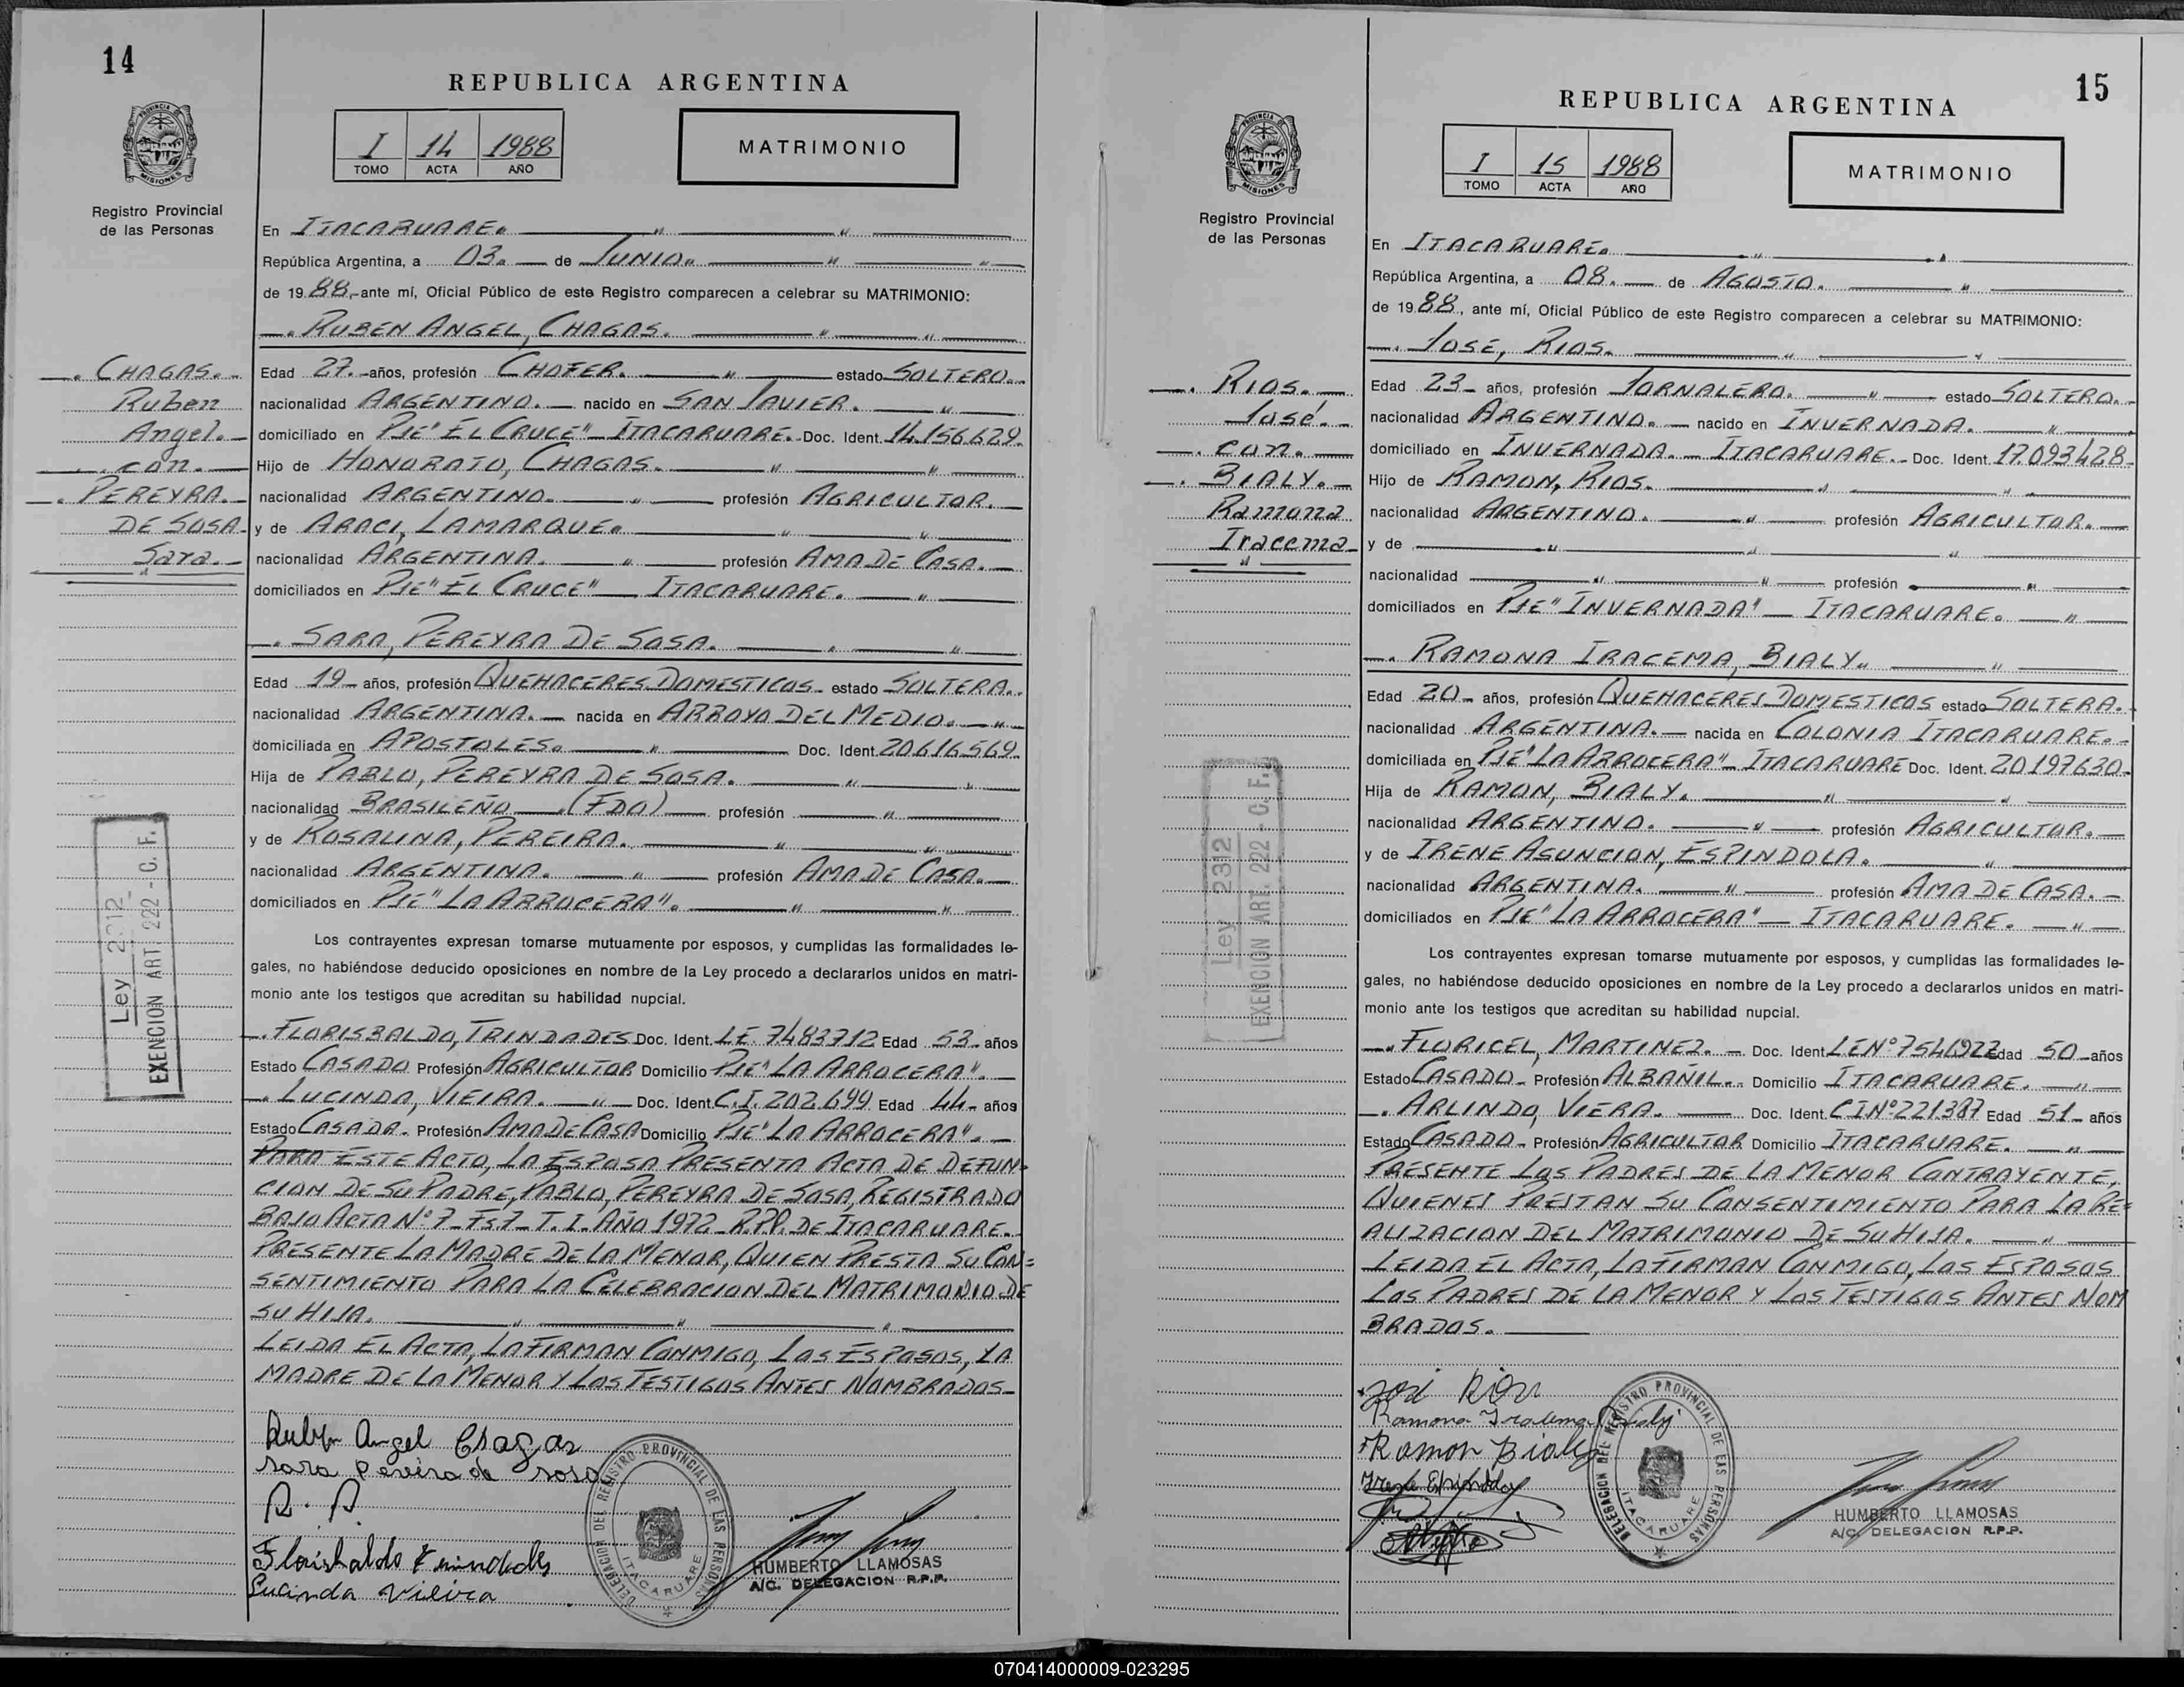 14
REPUBLICA ARGENTINA
I 14 1988
TOMO ACTA AÑO
MATRIMONIO
PROVINCIA DE
MISIONES
Registro Provincial
de las Personas
En ITACARUARE.
República Argentina, a 03. de JUNIO.
de 19 88.- ante mí, Oficial Público de este Registro comparecen a celebrar su MATRIMONIO:
RUBEN ANGEL, CHAGAS.
Edad 27.- años, profesión CHOFER. estado SOLTERO.
nacionalidad ARGENTINO. nacido en SAN JAVIER.
domiciliado en PJE "EL CRUCE" - ITACARUARE. Doc. Ident. 14.156.629.
Hijo de HONORATO, CHAGAS.
nacionalidad ARGENTINO. profesión AGRICULTOR.
y de ARACI, LAMARQUE.
nacionalidad ARGENTINA. profesión AMA DE CASA.
domiciliados en PJE "EL CRUCE" ITACARUARE.
SARA, PEREYRA DE SOSA.
Edad 19 - años, profesión QUEHACERES DOMESTICOS - estado SOLTERA.
nacionalidad ARGENTINA. nacida en ARROYO DEL MEDIO.
domiciliada en APOSTOLES. Doc. Ident. 20.616.569.
Hija de PABLO, PEREYRA DE SOSA.
nacionalidad BRASILEÑO (FDO) profesión
y de ROSALINA, PEREIRA.
nacionalidad ARGENTINA. profesión AMA DE CASA.
domiciliados en PJE "LA ARROCERA".
Los contrayentes expresan tomarse mutuamente por esposos, y cumplidas las formalidades le-
gales, no habiéndose deducido oposiciones en nombre de la Ley procedo a declararlos unidos en matri-
monio ante los testigos que acreditan su habilidad nupcial.
FLORISBALDO, TRINDADES Doc. Ident. L.E. 7483712 Edad 53 - años
Estado CASADO Profesión AGRICULTOR Domicilio PJE "LA ARROCERA".
LUCINDA, VIEIRA. Doc. Ident. C.I. 202.699 Edad 44 - años
Estado CASADA. Profesión AMA DE CASA Domicilio PJE "LA ARROCERA".
PARA ESTE ACTO, LA ESPOSA PRESENTA ACTA DE DEFUN-
CION DE SU PADRE, PABLO, PEREYRA DE SOSA, REGISTRADO
BAJO ACTA Nº 7 - Fs 7 - T. I. AÑO 1972 - R.P.P. DE ITACARUARE.
PRESENTE LA MADRE DE LA MENOR, QUIEN PRESTA SU CON=
SENTIMIENTO PARA LA CELEBRACION DEL MATRIMONIO DE
SU HIJA.
LEIDA EL ACTA, LA FIRMAN CONMIGO, LOS ESPOSOS, LA
MADRE DE LA MENOR Y LOS TESTIGOS ANTES NOMBRADOS -
CHAGAS.
Ruben
Angel.
con.
PEREYRA.
DE SOSA
Sara.
Ley 2312
EXENCION ART 222 - C. F.
Ruben Angel Chagas
sara pereira de sosa
R. P.
Florisbaldo Trindades
Lucinda Vieira
DELEGACION DEL REGISTRO PROVINCIAL DE LAS PERSONAS
ITACARUARE
HUMBERTO LLAMOSAS
A/C. DELEGACION R.P.P.
15
REPUBLICA ARGENTINA
I 15 1988
TOMO ACTA AÑO
MATRIMONIO
PROVINCIA DE
MISIONES
Registro Provincial
de las Personas
En ITACARUARE.
República Argentina, a 08. de AGOSTO.
de 19 88., ante mí, Oficial Público de este Registro comparecen a celebrar su MATRIMONIO:
JOSE, RIOS.
Edad 23 - años, profesión JORNALERO. estado SOLTERO.
nacionalidad ARGENTINO. nacido en INVERNADA.
domiciliado en INVERNADA. - ITACARUARE. - Doc. Ident. 17.093.428
Hijo de RAMON, RIOS.
nacionalidad ARGENTINO. profesión AGRICULTOR.
y de
nacionalidad profesión
domiciliados en PJE "INVERNADA" - ITACARUARE.
RAMONA IRACEMA, BIALY.
Edad 20 - años, profesión QUEHACERES DOMESTICOS estado SOLTERA.
nacionalidad ARGENTINA. nacida en COLONIA ITACARUARE.
domiciliada en PJE "LA ARROCERA" - ITACARUARE Doc. Ident. 20.197.630
Hija de RAMON, BIALY.
nacionalidad ARGENTINO. profesión AGRICULTOR.
y de IRENE ASUNCION, ESPINDOLA.
nacionalidad ARGENTINA. profesión AMA DE CASA.
domiciliados en PJE "LA ARROCERA" - ITACARUARE.
Los contrayentes expresan tomarse mutuamente por esposos, y cumplidas las formalidades le-
gales, no habiéndose deducido oposiciones en nombre de la Ley procedo a declararlos unidos en matri-
monio ante los testigos que acreditan su habilidad nupcial.
FLORICEL, MARTINEZ. Doc. Ident. LE Nº Edad 50 - años
Estado CASADO - Profesión ALBAÑIL. Domicilio ITACARUARE.
ARLINDO, VIERA. Doc. Ident. C I Nº 221.387 Edad 51 - años
Estado CASADO - Profesión AGRICULTOR Domicilio ITACARUARE.
PRESENTE LOS PADRES DE LA MENOR CONTRAYENTE,
QUIENES PRESTAN SU CONSENTIMIENTO PARA LA RE=
ALIZACION DEL MATRIMONIO DE SU HIJA.
LEIDA EL ACTA, LA FIRMAN CONMIGO, LOS ESPOSOS
LOS PADRES DE LA MENOR Y LOS TESTIGOS ANTES NOM
BRADOS.
RIOS.
José.
con.
BIALY.
Ramona
Iracema
Ley 2312
EXENCION ART. 222 - C. F.
José Rios
Ramona Iracema Bialy
Ramon Bialy
Irene Espindola
DELEGACION DEL REGISTRO PROVINCIAL DE LAS PERSONAS
ITACARUARE
HUMBERTO LLAMOSAS
A/C. DELEGACION R.P.P.
070414000009-023295